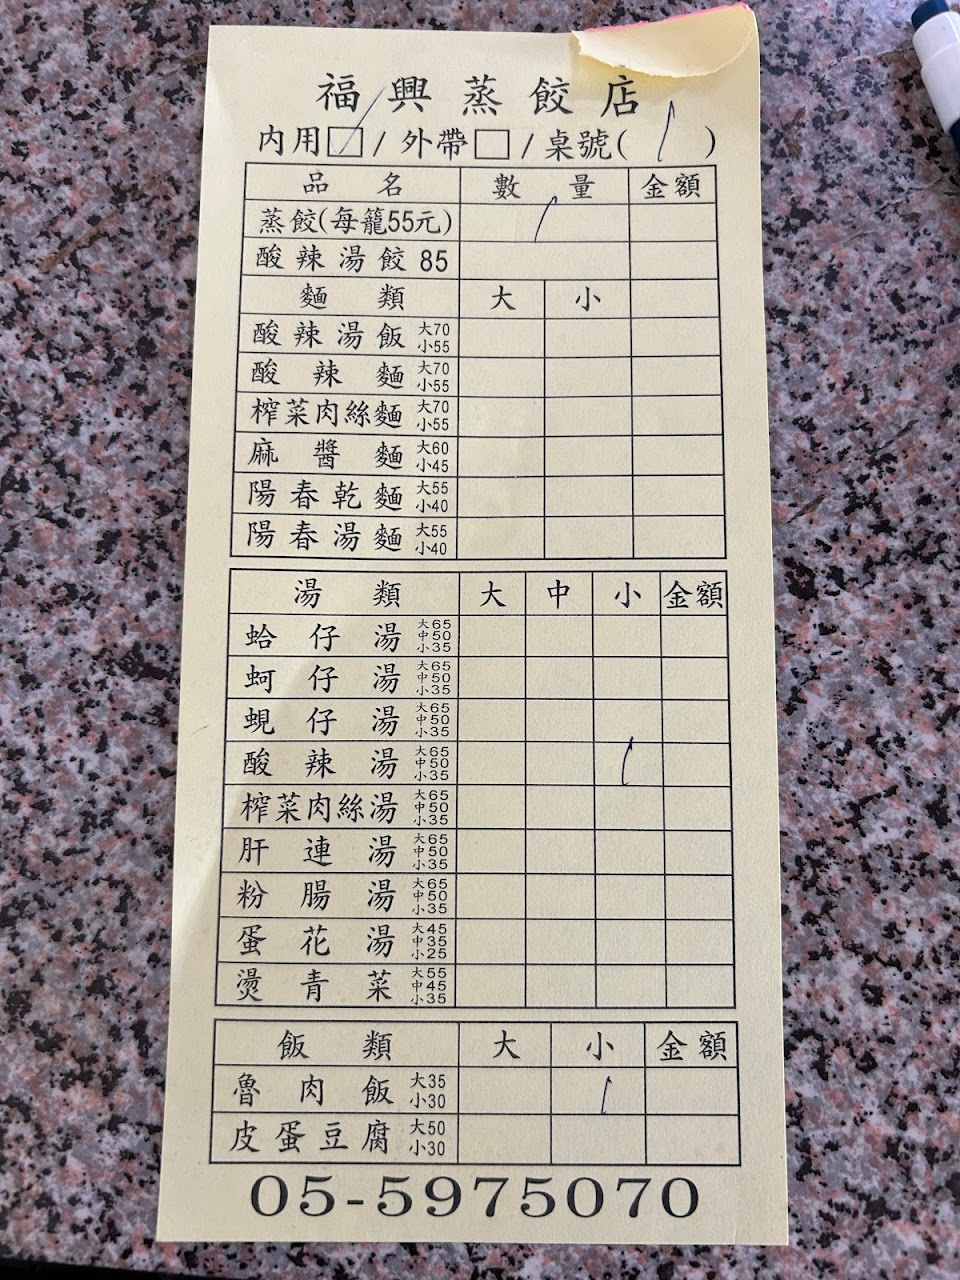 福興蒸餃店
內用☑/外帶□/桌號(1)
品名 數量 金額
蒸餃(每籠55元) 1
酸辣湯餃 85
麵類 大 小
酸辣湯飯 大70 小55
酸辣麵 大70 小55
榨菜肉絲麵 大70 小55
麻醬麵 大60 小45
陽春乾麵 大55 小40
陽春湯麵 大55 小40
湯類 大 中 小 金額
蛤仔湯 大65 中50 小35
蚵仔湯 大65 中50 小35
蜆仔湯 大65 中50 小35
酸辣湯 大65 中50 小35 1
榨菜肉絲湯 大65 中50 小35
肝連湯 大65 中50 小35
粉腸湯 大65 中50 小35
蛋花湯 大45 中35 小25
燙青菜 大55 中45 小35
飯類 大 小 金額
魯肉飯 大35 小30 1
皮蛋豆腐 大50 小30
05-5975070